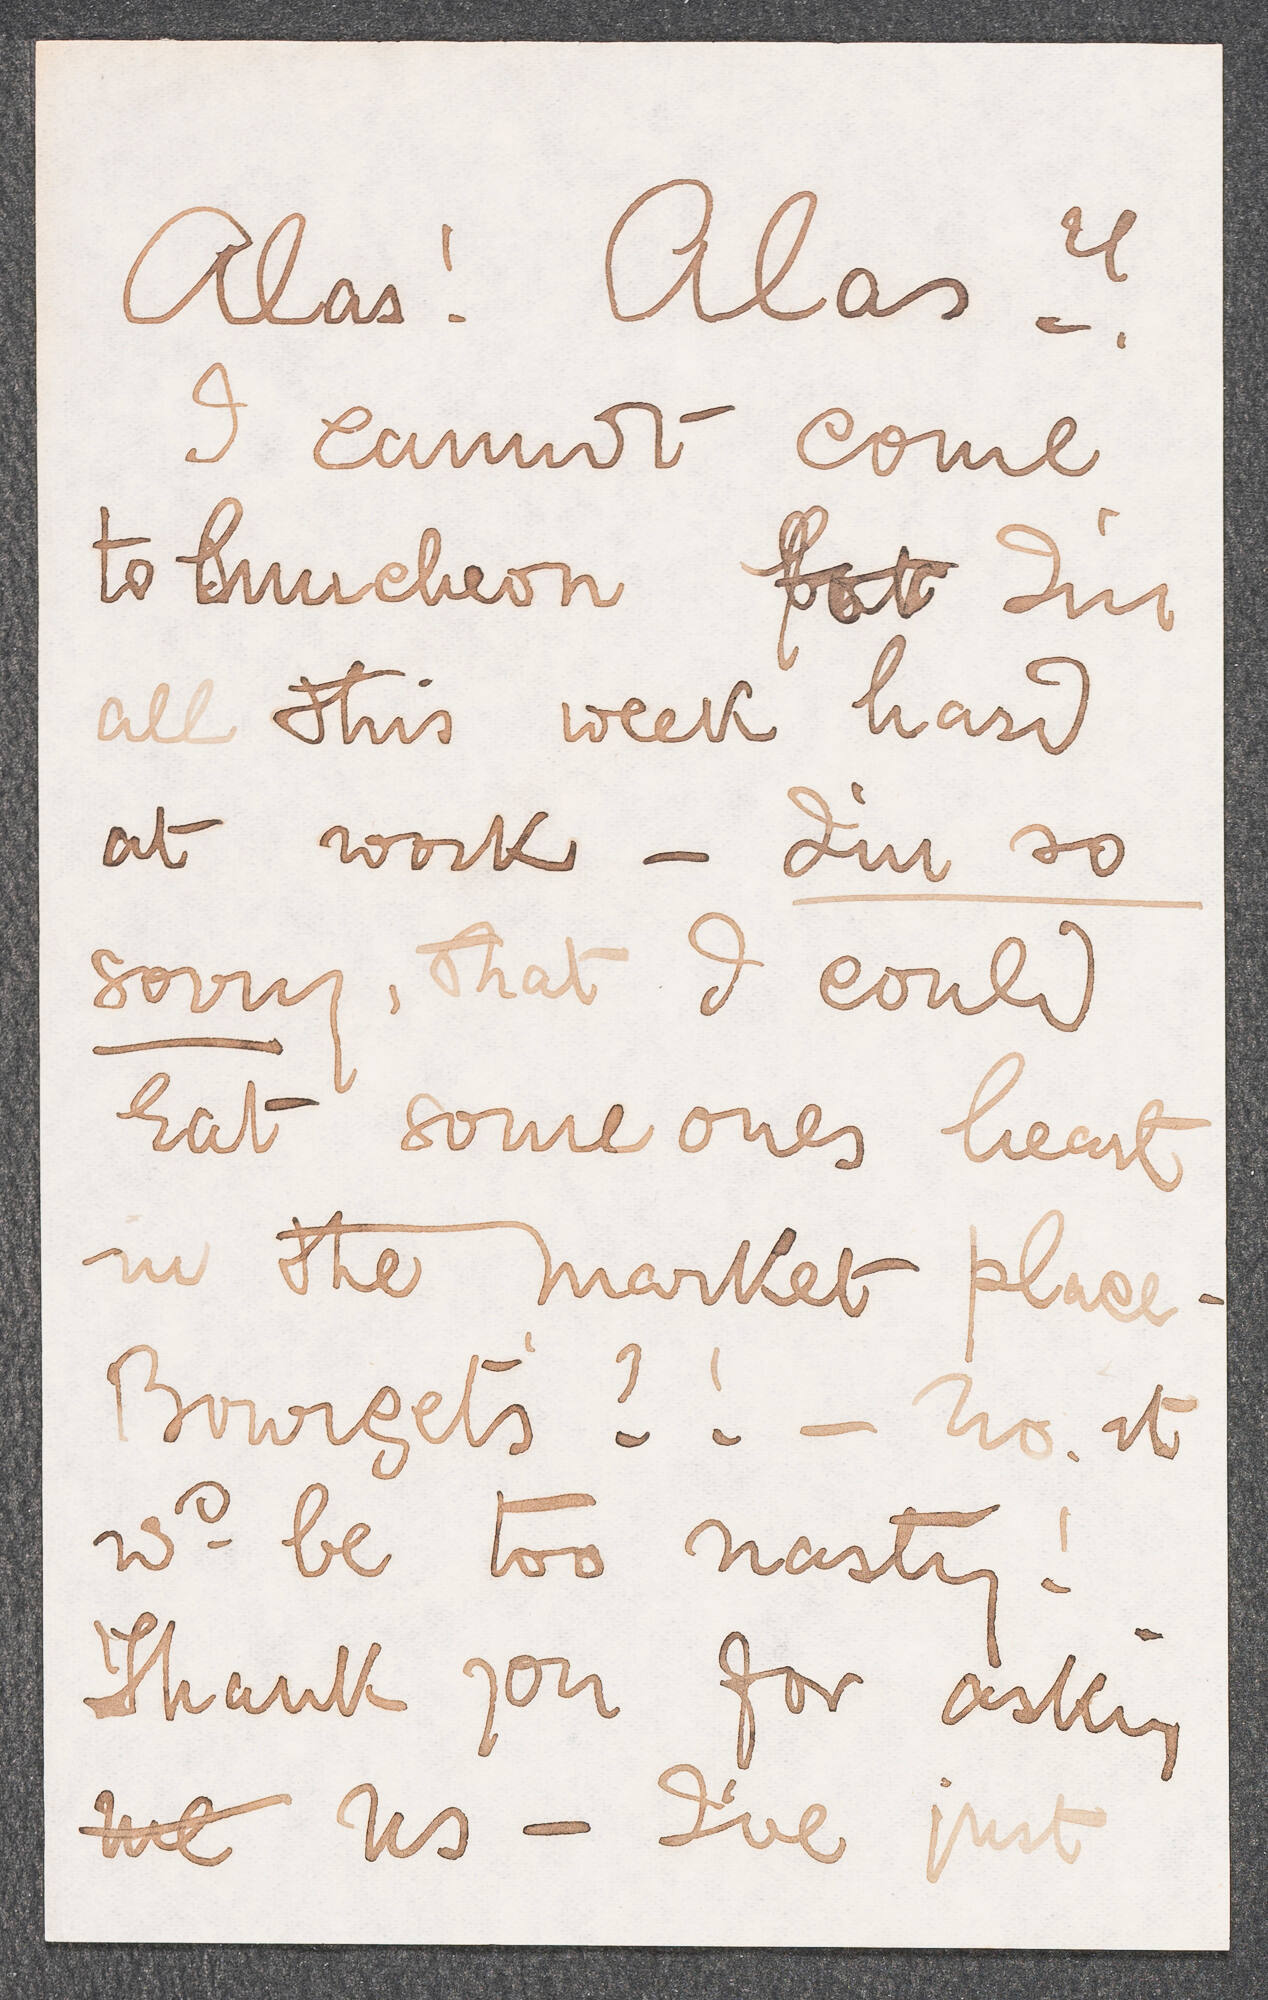 Alas! Alas!!
I cannot come
to luncheon for I'm
all this week hard
at work – I'm so
sorry, that I could
Eat some ones heart
in the market place –
Bourget's?! – No. it
wd be too nasty!
Thank you for asking
me us – I've just